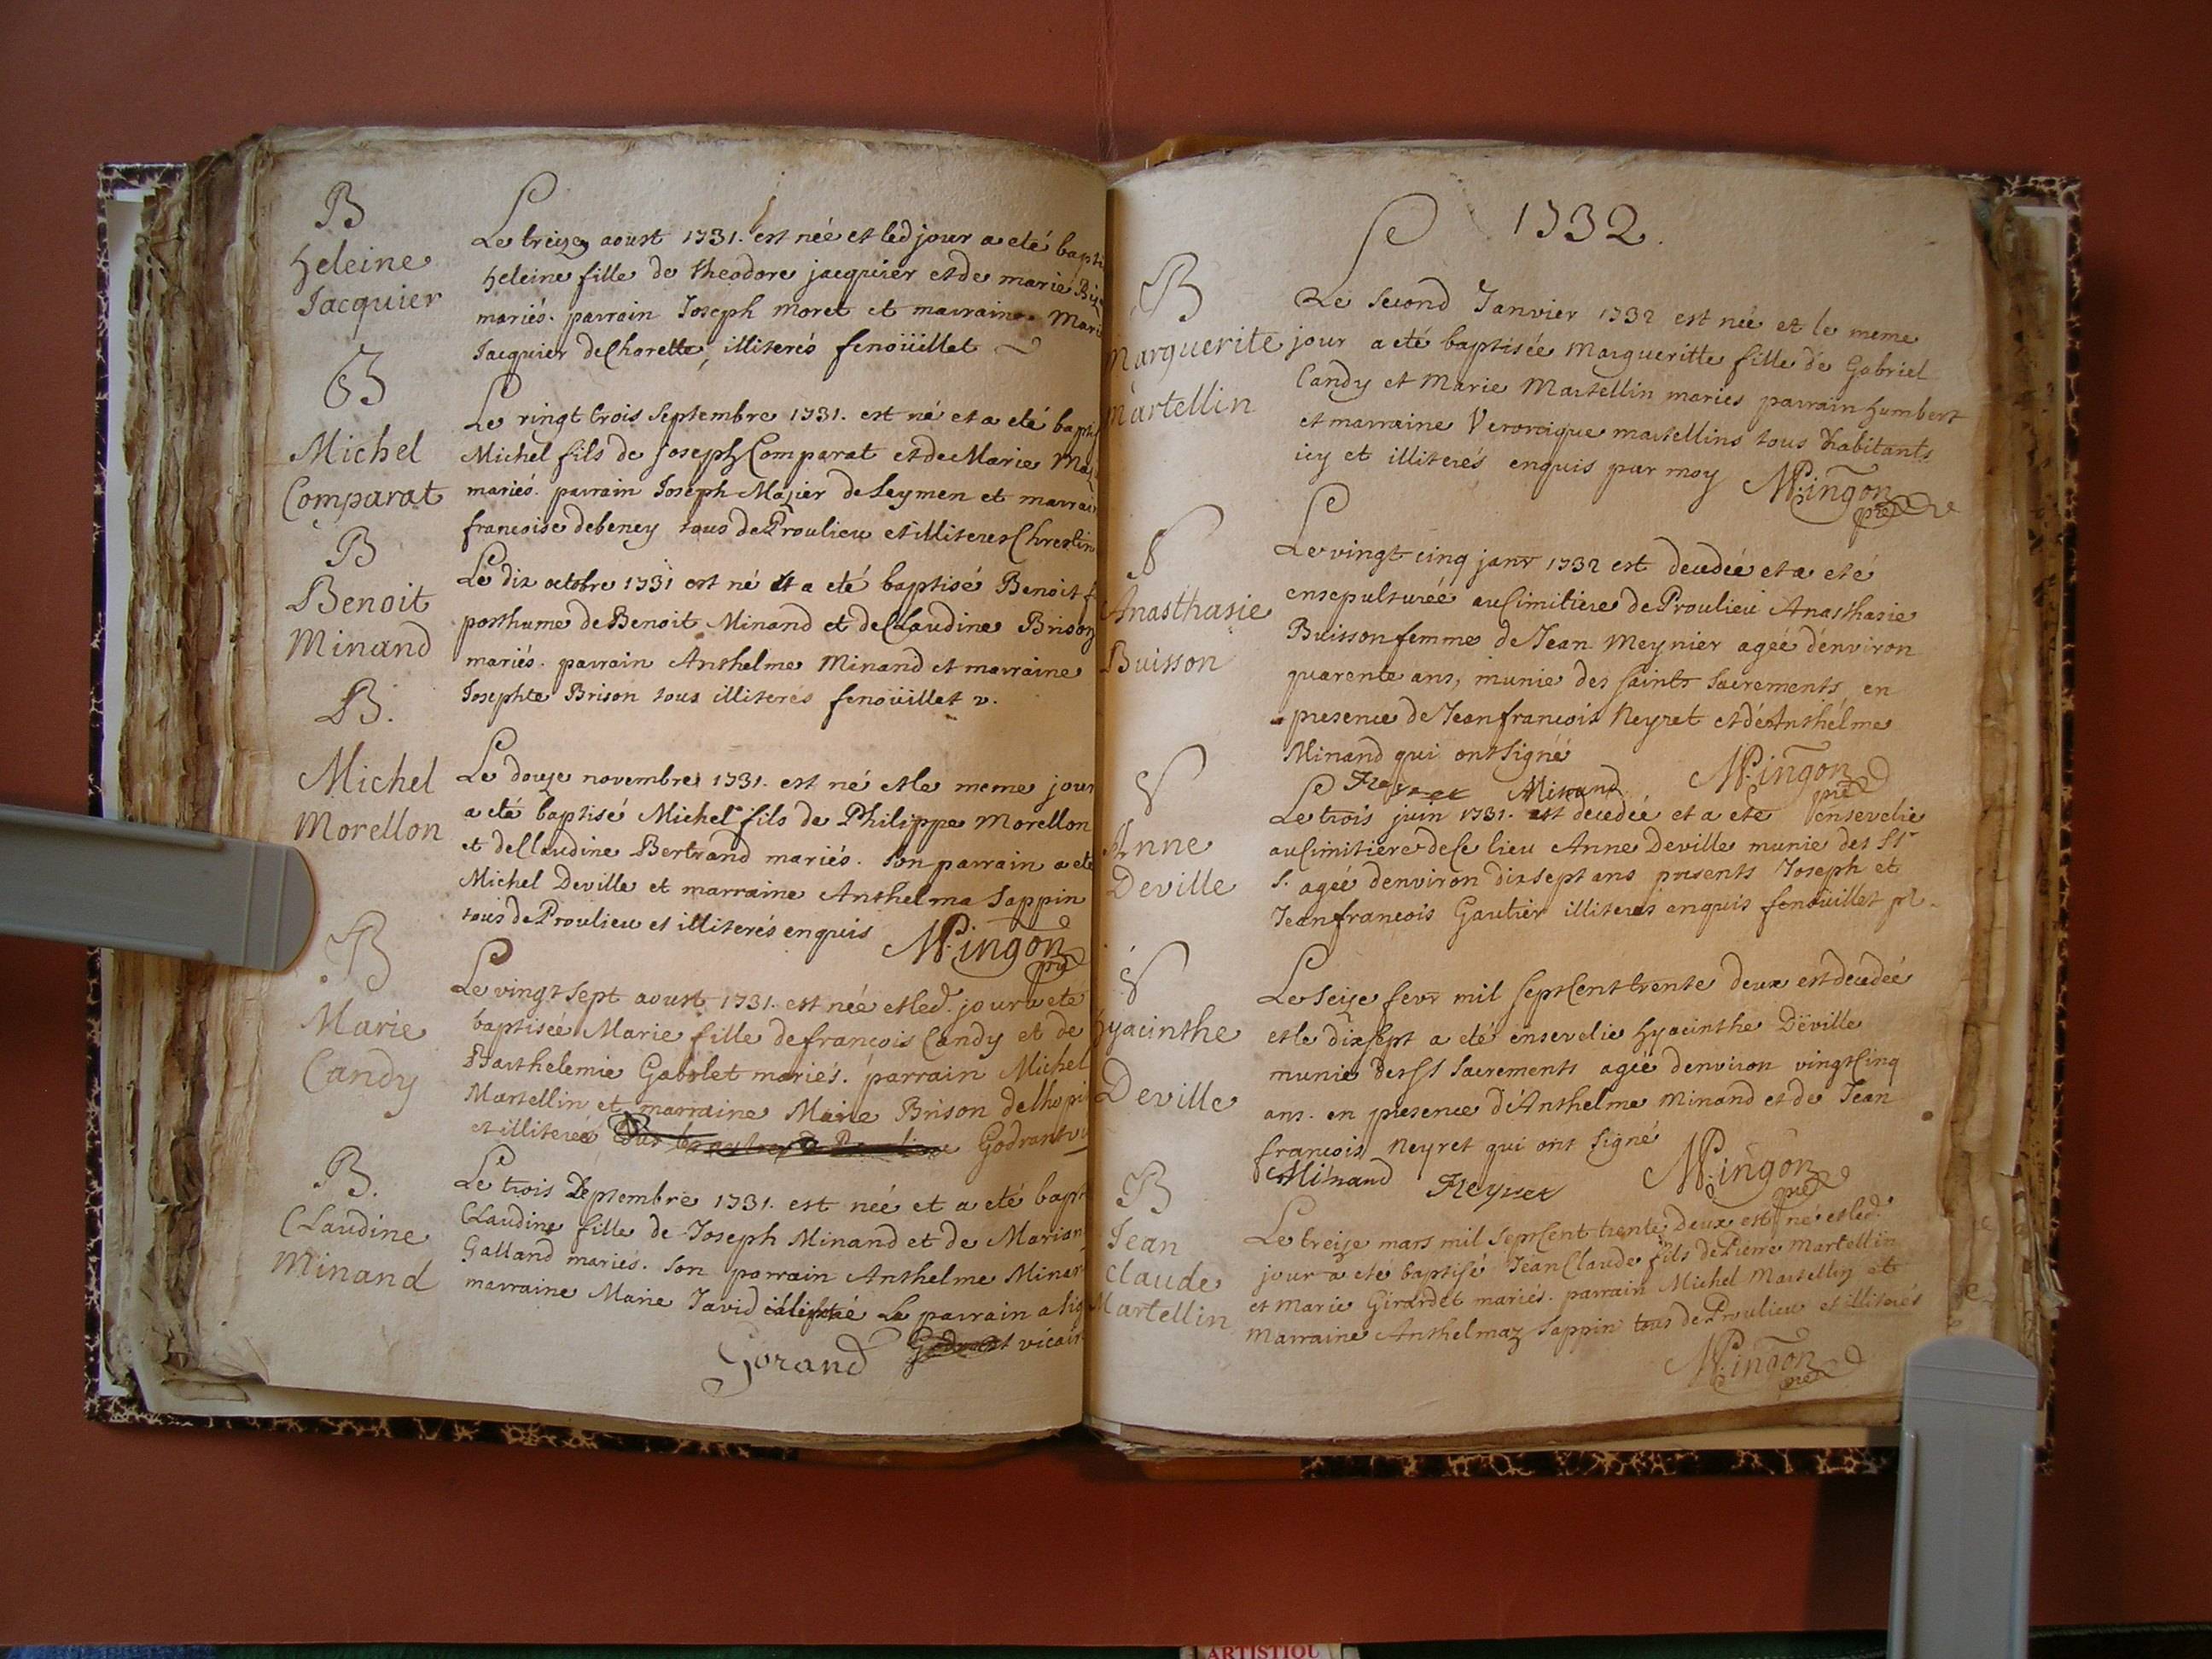 B
Heleine
Jacquier
Le treize aoust 1731. est née et led jour a eté bapti
Heleine fille de theodore jacquier et de marie
mariés. parrain Joseph moret et marraine Mari
Jacquier de Chorette, illiterés fenoüillet
B
Michel
Comparat
Le vingt trois septembre 1731. est né et a eté bapti
Michel fils de Joseph Comparat et de Marie Maz
mariés. parrain Joseph Mazier de Leymen et marrai
francoise debeney tous de Proulieu et illiteres Chrestin
B
Benoit
Minand
Le dix octobre 1731 est né et a eté baptisé Benoit f
posthume de Benoit Minand et de Claudine Brison
mariés. parrain Anthelme Minand et marraine
Josephte Brison tous illiterés fenoüillet v.
B.
Michel
Morellon
Le douze novembre 1731. est né et le meme jour
a eté baptisé Michel fils de Philippe Morellon
et de Claudine Bertrand mariés. son parrain a eté
Michel Deville et marraine Anthelma Sappin
tous de Proulieu et illiterés enquis Mingon
pre
B
Marie
Candy
Le vingt sept aoust 1731. est née et led. jour a eté
baptisée Marie fille de francois Candy et de
Barthelemie Gabolet mariés. parrain Michel
Martellin et marraine Marie Brison delhopi
et illiterés Godrant vi
B.
Claudine
Minand
Le trois Septembre 1731. est née et a eté bapt
Claudine fille de Joseph Minand et de Marian
Galland mariés. son parrain Anthelme Minan
marraine Marie Javid Le parrain a sig
Godrant vicair
Gorand
1732.
B
Marguerite
Martellin
Le second Janvier 1732 est née et le meme
jour a eté baptisée Margueritte fille de Gabriel
Candy et Marie Martellin mariés parrain humbert
et marraine Veronique martellins tous habitants
icy et illiterés enquis par moy Mingon
pre
S
Anasthasie
Buisson
Le vingt cinq janvr 1732 est decedée et a eté
ensepulturéé au Cimitiere de Proulieu Anasthasie
Buisson femme de Jean Meynier agéé d'environ
quarente ans, munie des saints sacrements en
presence de Jean francois Neyret et de Anthélme
Minand qui ont signé Mingon
pre
Neyret Minand
S
Anne
Deville
Le trois juin 1731. est decedée et a eté ensevelie
au Cimitiere de Ce lieu Anne Deville munie des Sts
S. agéé denviron dixsept ans presents Joseph et
Jean francois Gautier illiterés enquis fenoüillet
S
Hyacinthe
Deville
Le seize fevr mil sept Cent trente deux est decedéé
et le dixsept a eté ensevelie Hyacinthe Deville
munie des SS sacrements agéé denviron vingt Cinq
ans. en presence d'Anthelme Minand et de Jean
francois Neyret qui ont signé
Minand Neyret Mingon
pre
B
Jean
claude
Martellin
Le treize mars mil sept Cent trente deux est né et led.
jour a eté baptisé Jean Claude fils de Pierre Martellin
et Marie Girardet mariés. parrain Michel Martellin et
Marraine Anthelmaz Sappin tous de Proulieu et illiterés
Mingon
pre
ARTISTIQU